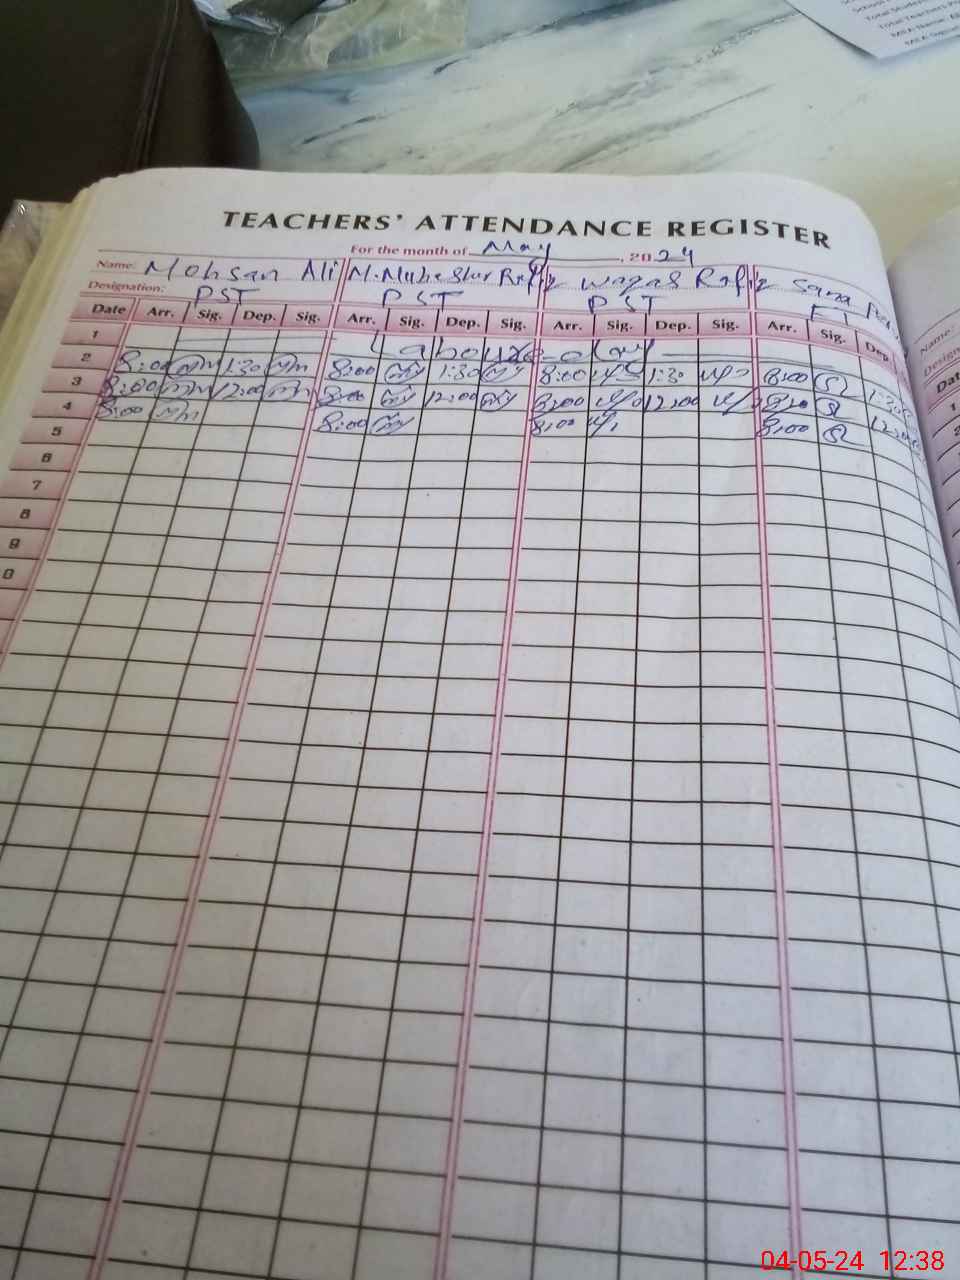 School
Total Student
Total Teachers Pr
MEA Name: A
MEA Signat
TEACHERS' ATTENDANCE REGISTER
For the month of May, 2024
Name: Mohsan Ali M. Mubeshar Rafiq Waqas Rafiq Sana
Designation: PST PST PST
Date Arr. Sig. Dep. Sig. Arr. Sig. Dep. Sig. Arr. Sig. Dep. Sig. Arr. Sig. Dep.
1 Labour Day
2 8:00 1:30 8:00 1:30 8:00 1:30 8:00 1:30
3 8:00 12:00 8:00 12:00 8:00 12:00 8:00 12:00
4 8:00 8:00 8:00 8:00
5
6
7
8
9
0
Name:
Design
Dat
1
2
04-05-24 12:38